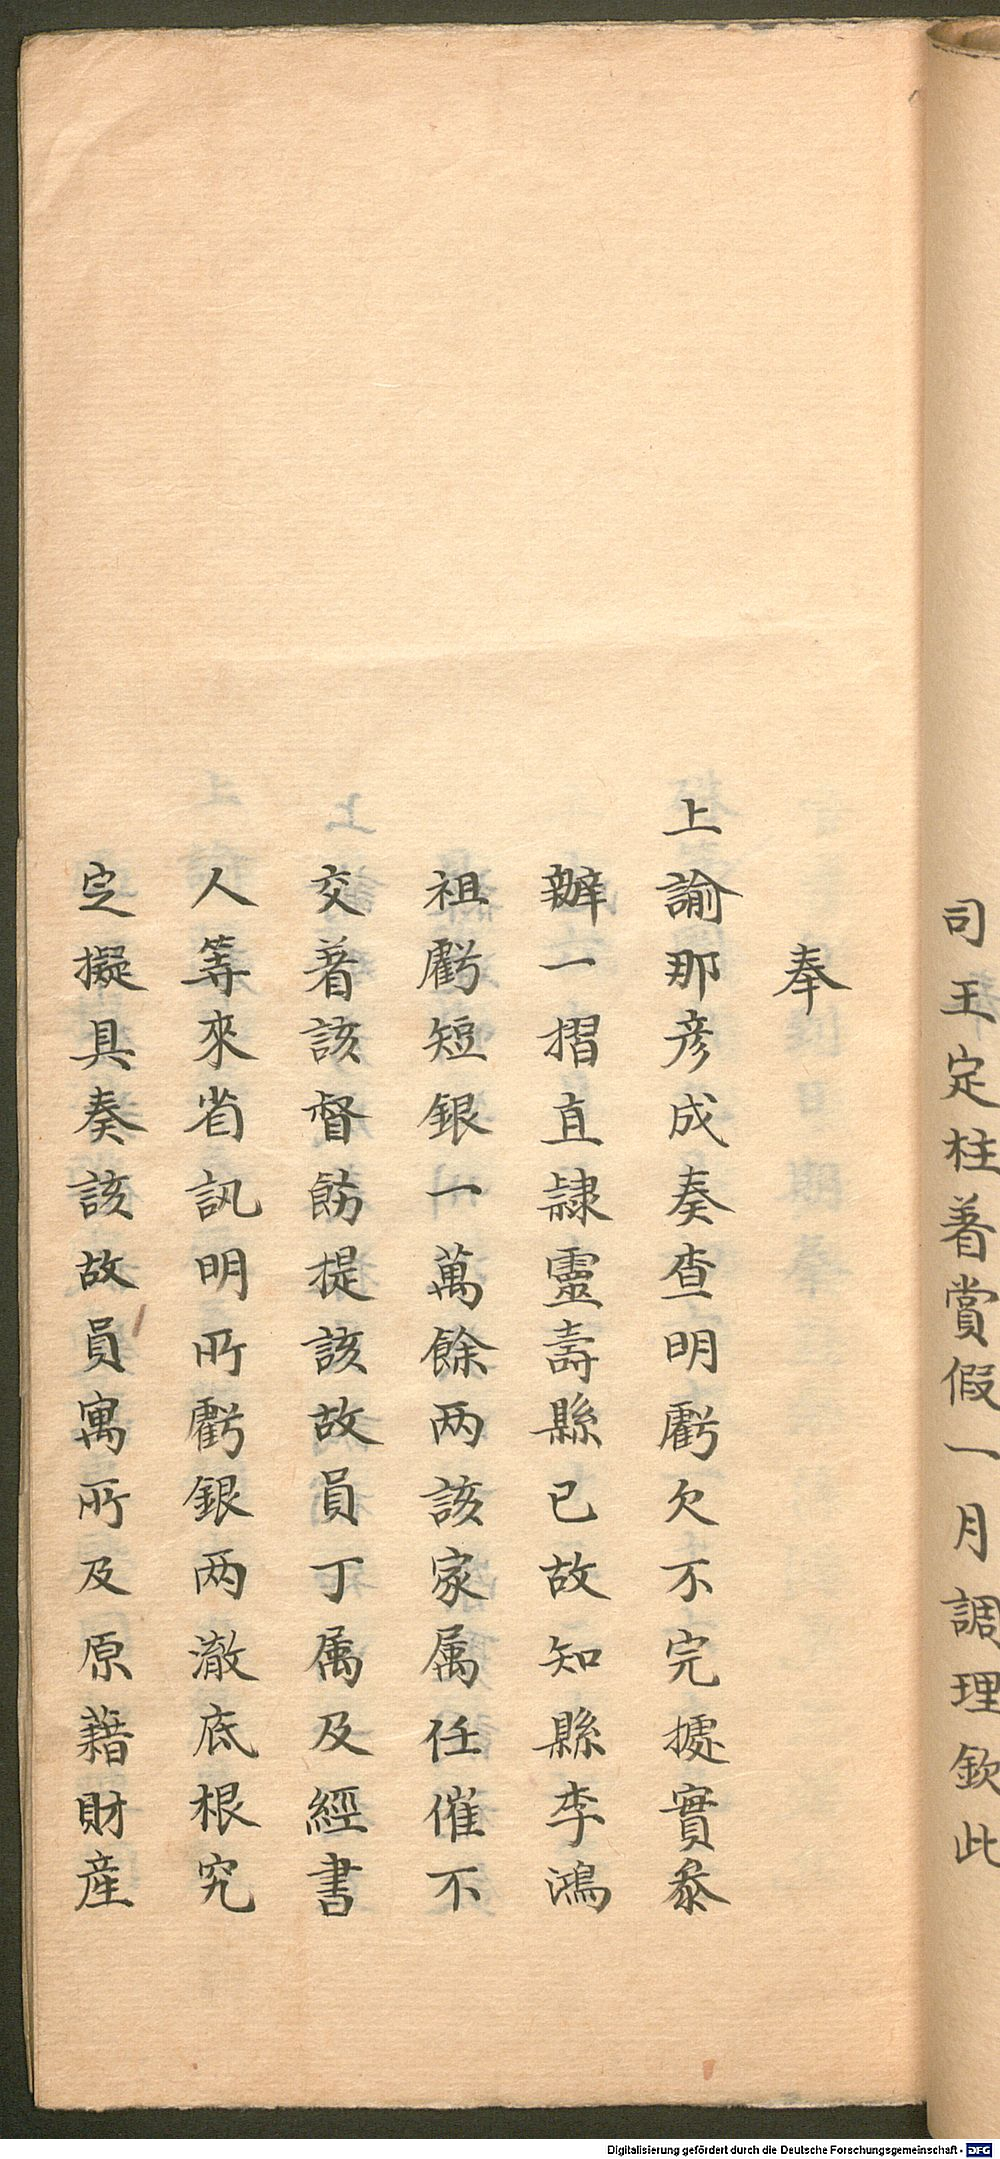 司王定柱着賞假一月調理欽此
奉
上諭那彦成奏查明虧欠不完據實叅
辦一摺直隷靈壽縣已故知縣李鴻
祖虧短銀一萬餘两該家属任催不
交着該督飭提該故員丁属及經書
人等來省訊明所虧銀两澈底根究
定擬具奏該故員寓所及原藉財産
Digitalisierung gefördert durch die Deutsche Forschungsgemeinschaft - DFG